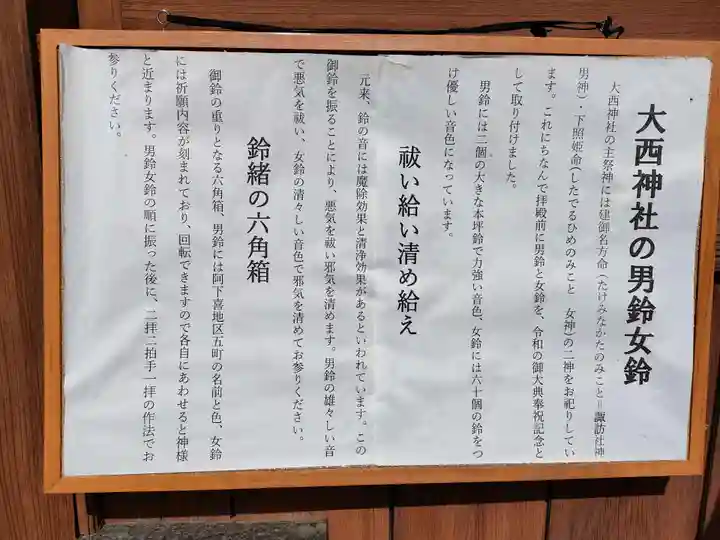 大西神社の男鈴女鈴
大西神社の主祭神には建御名方命(たけみなかたのみこと=諏訪社神
男神)・下照姫命(したでるひめのみこと 女神)の二神をお祀りしてい
ます。これにちなんで拝殿前に男鈴と女鈴を、令和の御大典奉祝記念と
して取り付けました。
男鈴には二個の大きな本坪鈴で力強い音色、女鈴には六十個の鈴をつ
け優しい音色になっています。
祓い給い清め給え
元来、鈴の音には魔除効果と清浄効果があるといわれています。この
御鈴を振ることにより、悪気を祓い邪気を清めます。男鈴の雄々しい音
で悪気を祓い、女鈴の清々しい音色で邪気を清めてお参りください。
鈴緒の六角箱
御鈴の重りとなる六角箱、男鈴には阿下喜地区五町の名前と色、女鈴
には祈願内容が刻まれており、回転できますので各自にあわせると神様
と近まります。男鈴女鈴の順に振った後に、二拝二拍手一拝の作法でお
参りください。